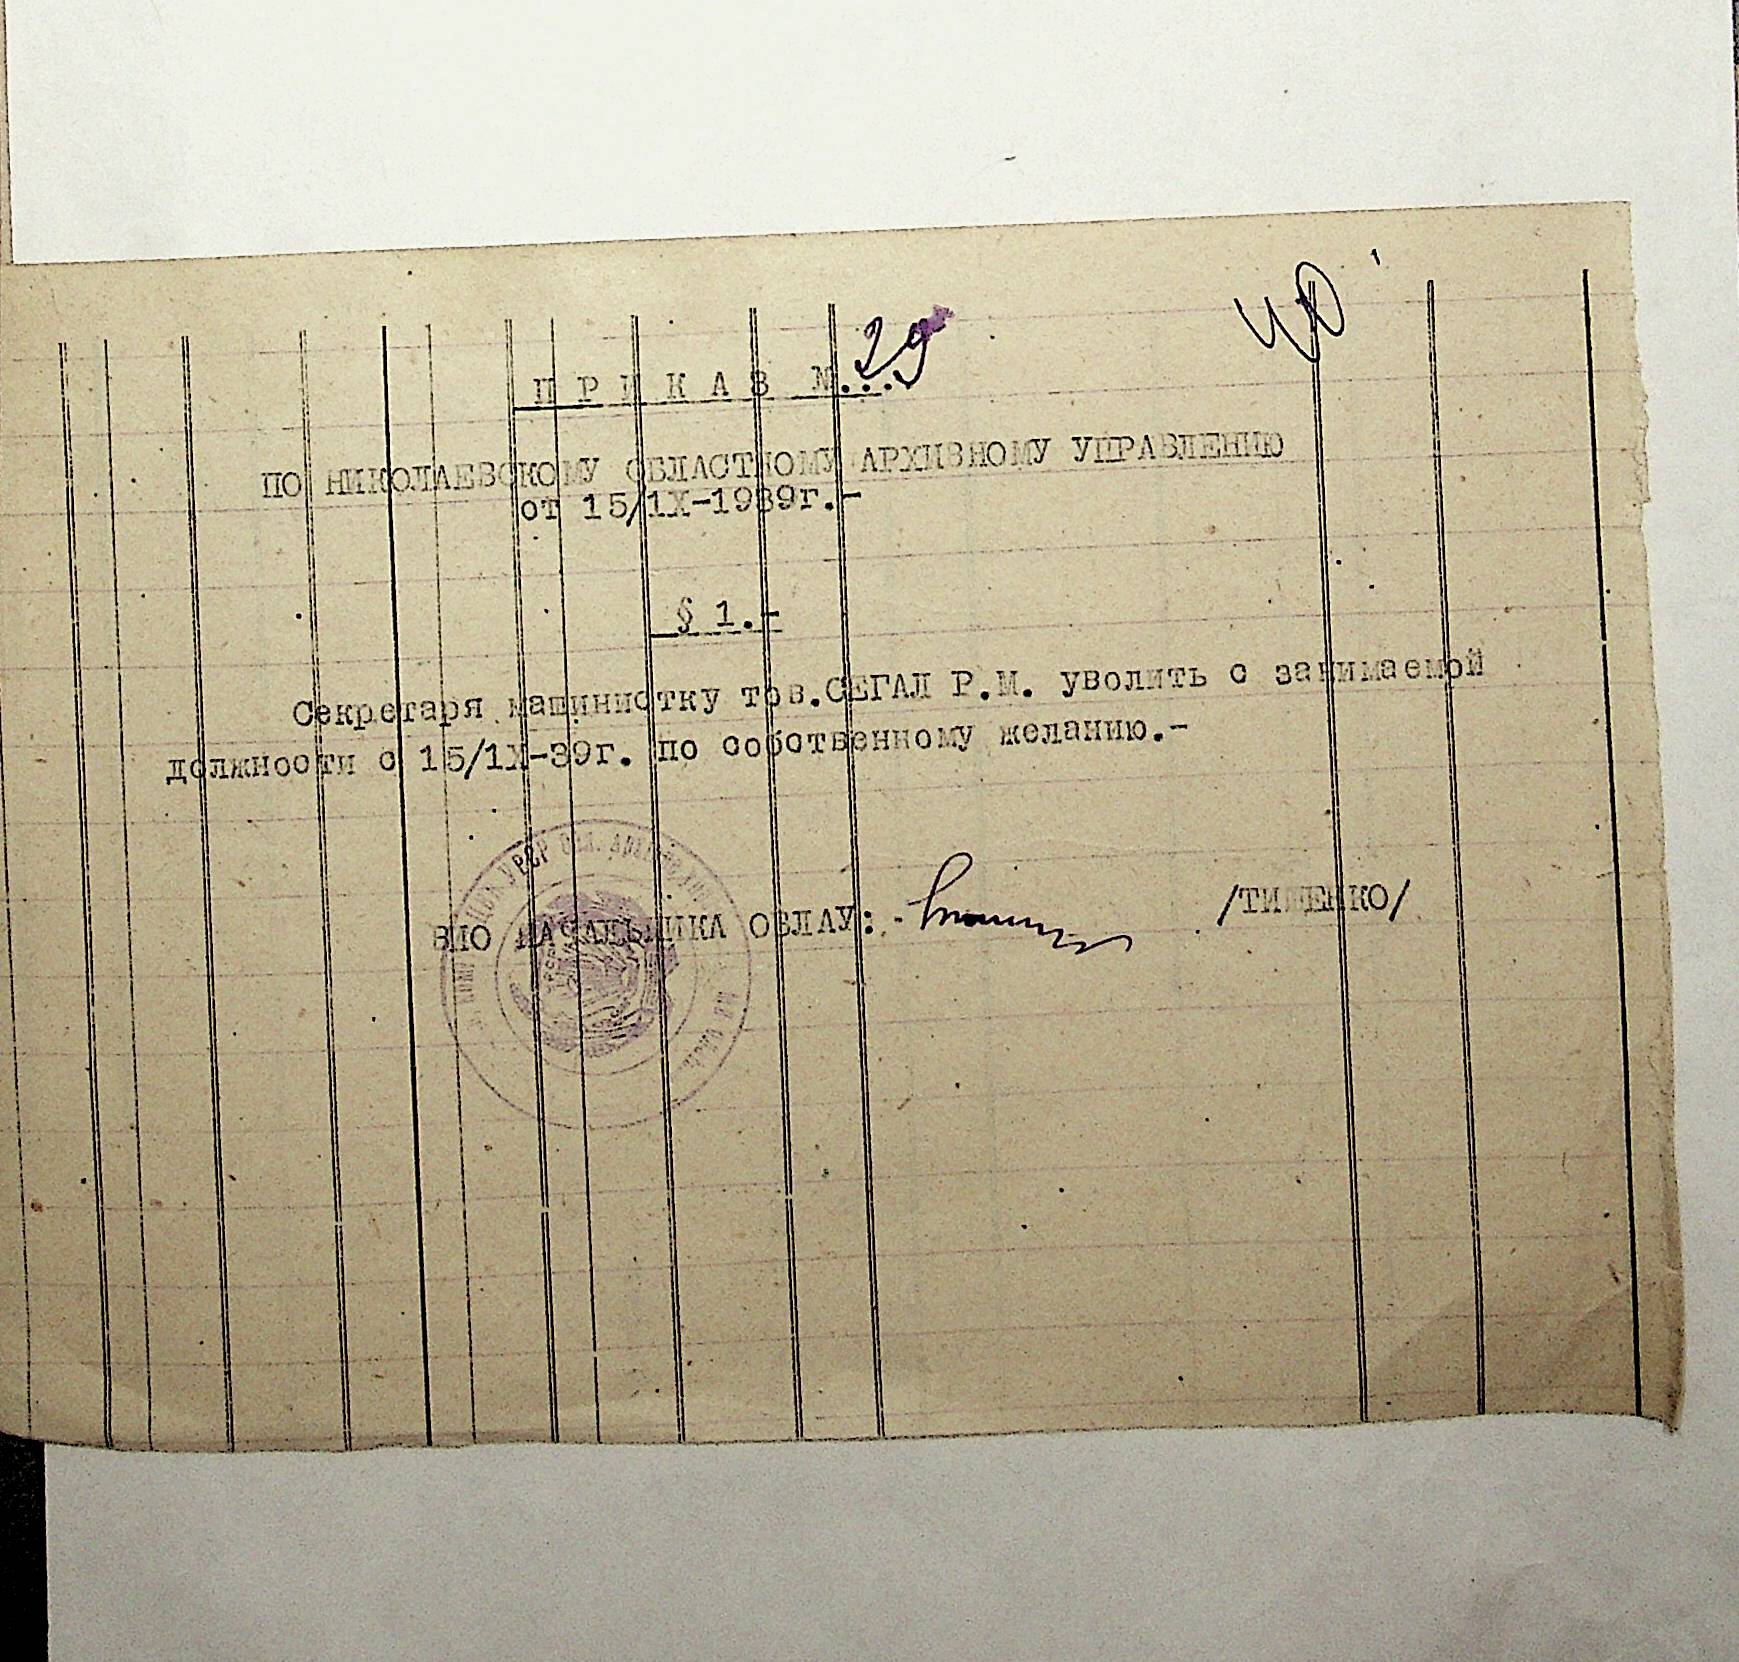 40
П Р И К А З №...29
ПО НИКОЛАЕВСКОМУ ОБЛАСТНОМУ АРХИВНОМУ УПРАВЛЕНИЮ
от 15/1Х-1939г.-
§ 1.-
Секретаря машинистку тов.СЕГАЛ Р.М. уволить с занимаемой
должности с 15/1Х-39г. по собственному желанию.-
УРСР
ВИО НАЧАЛЬНИКА ОБЛАУ: